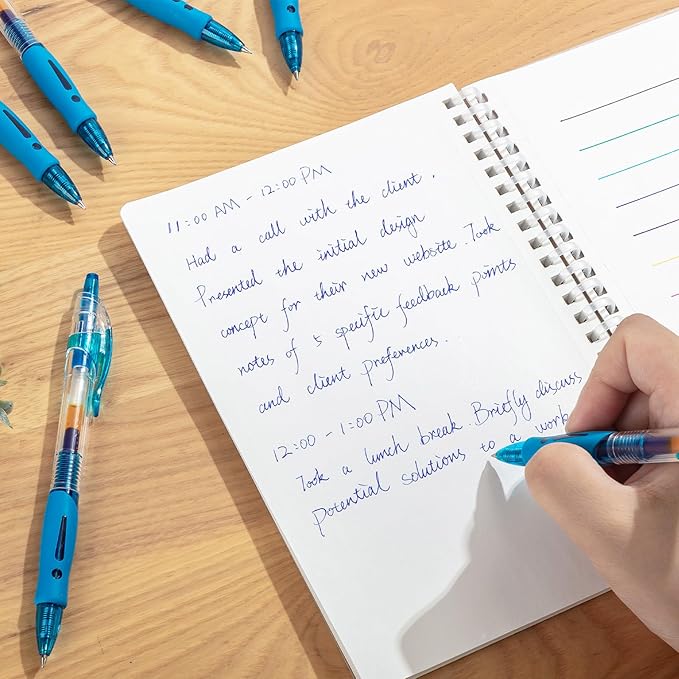 11:00 AM - 12:00 PM
Had a call with the client.
Presented the initial design
concept for their new website. Took
notes of 5 specific feedback points
and client preferences.
12:00 - 1:00 PM
Took a lunch break. Briefly discuss
potential solutions to a work